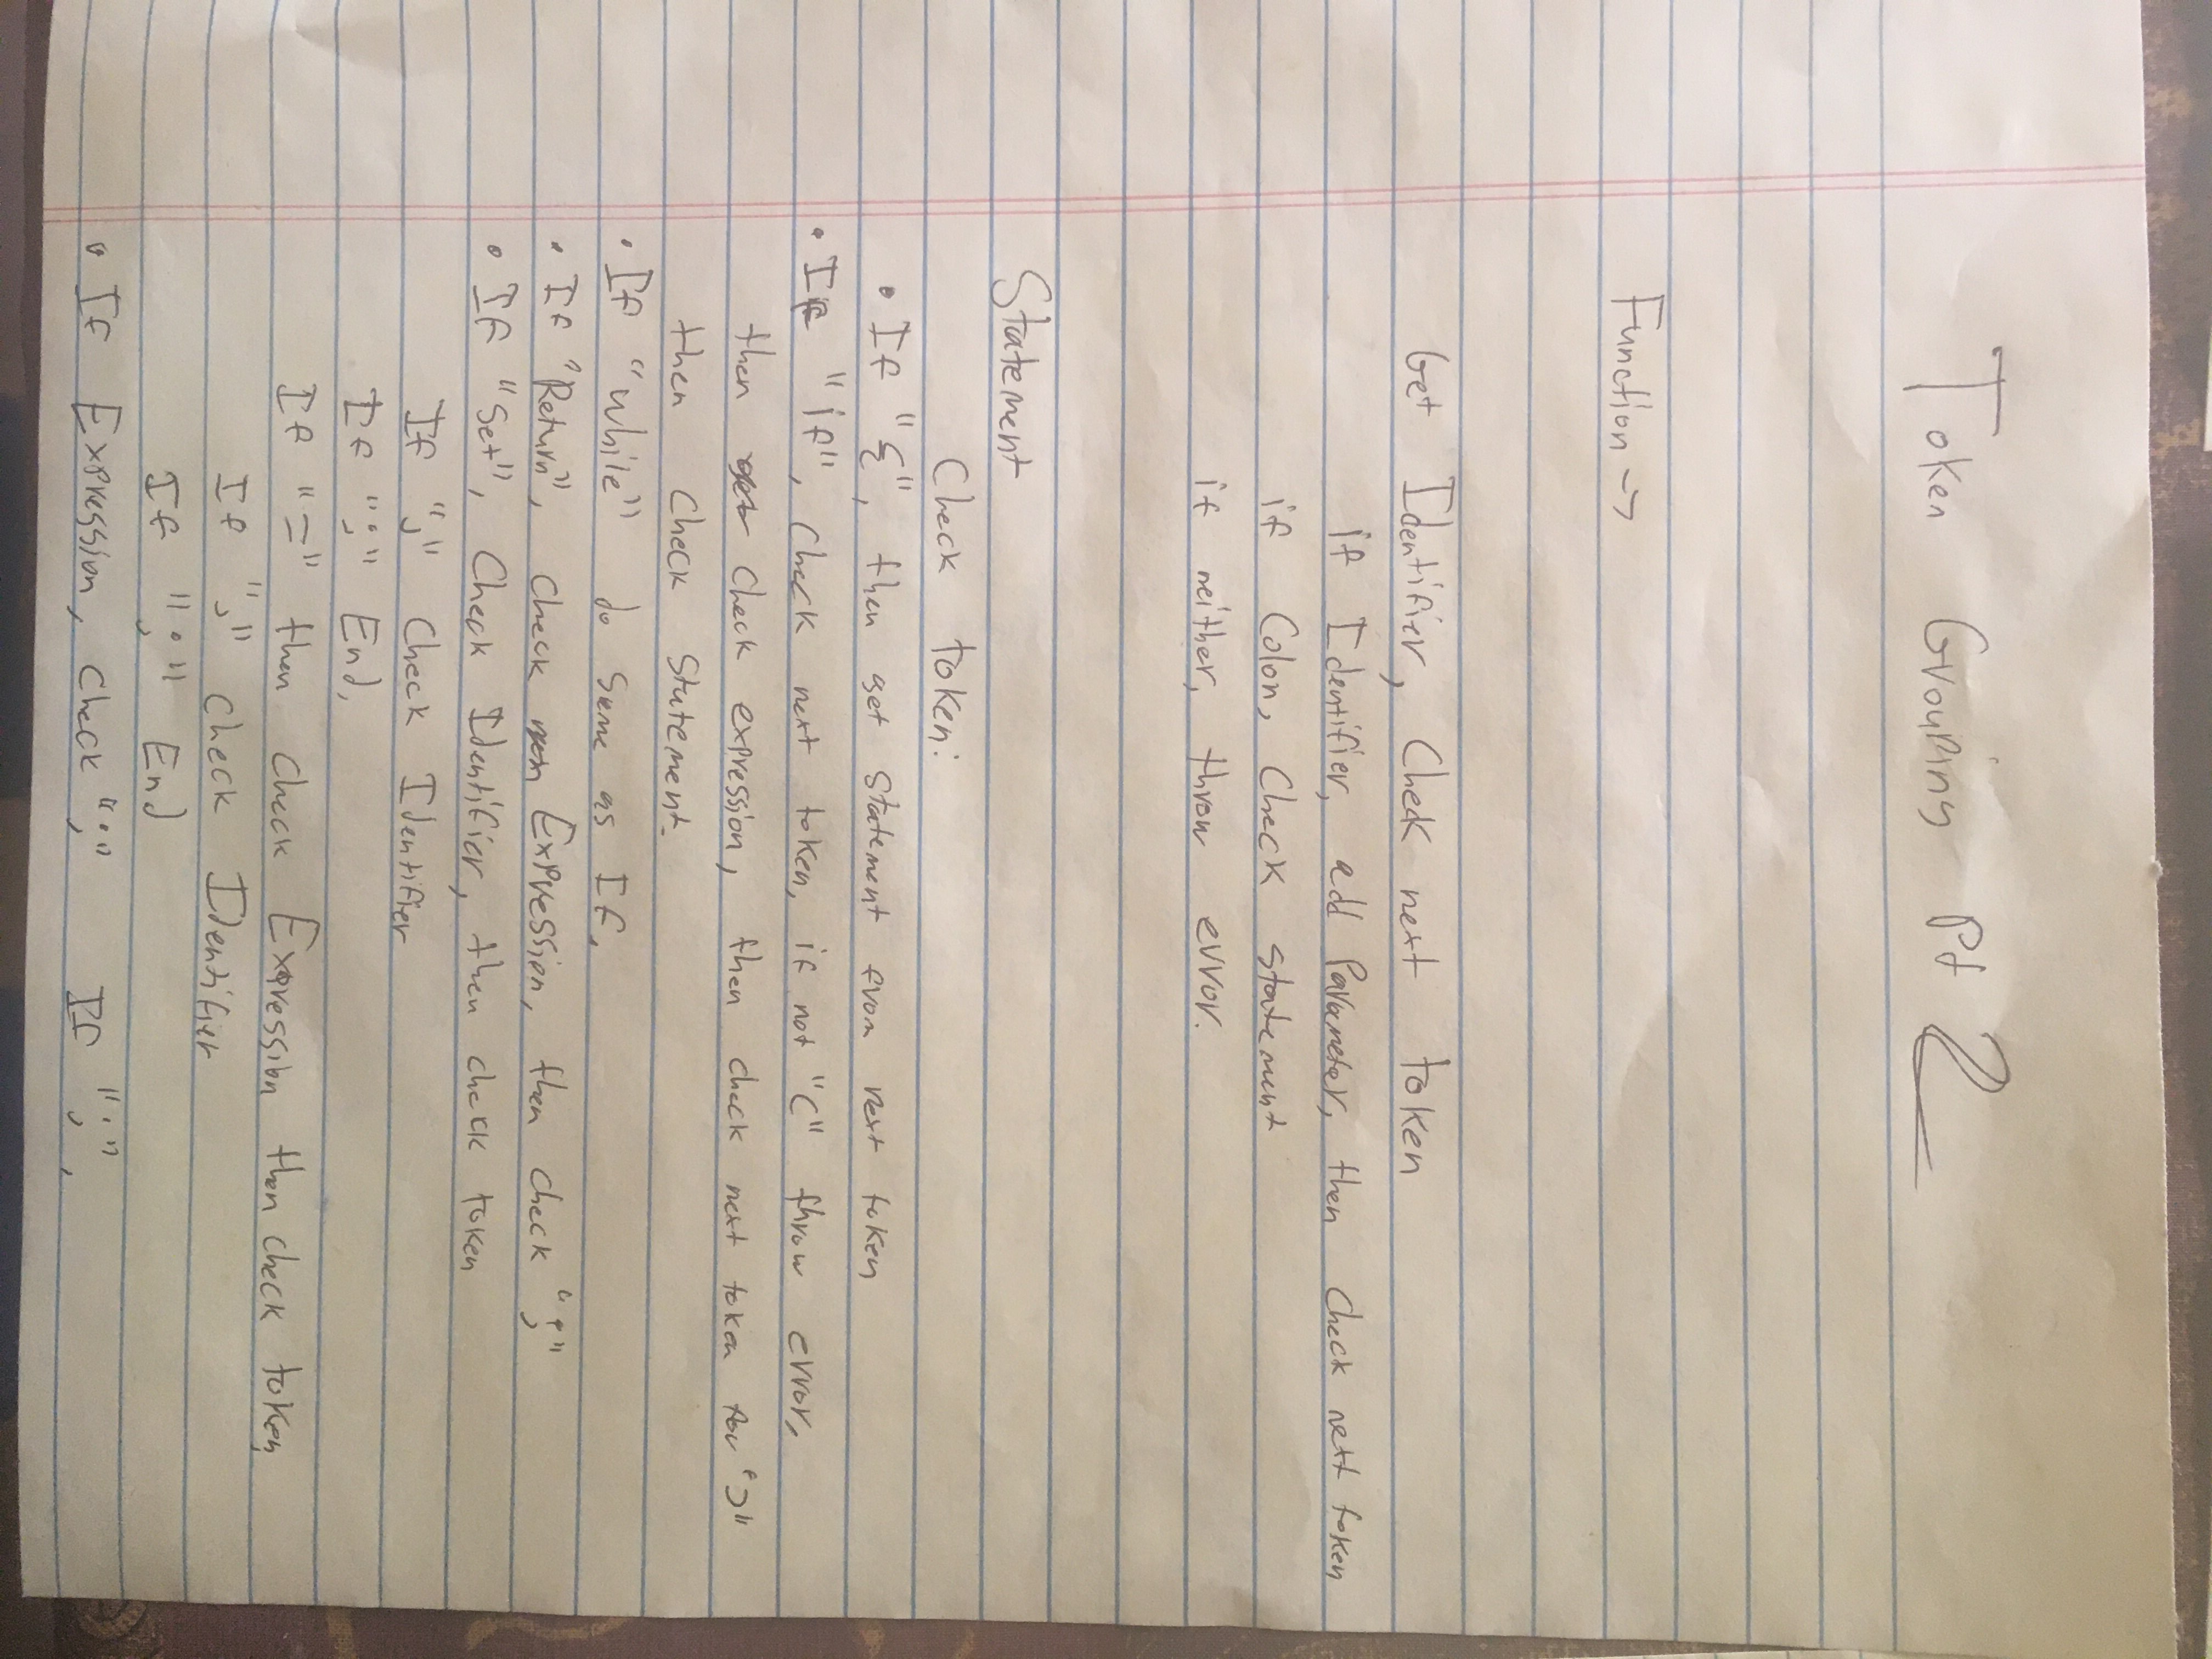 Token Grouping Pt 2
Function →
Get Identifier, Check next token
if Identifier, add Parameter, then check next token
if Colon, Check Statement
if neither, throw error.
Statement
Check token:
• If "{", then get Statement from next token
• If "if", Check next token, if not "(" throw error,
then check expression, then check next token for ")"
then Check Statement.
• If "while" do same as If.
• If "Return", Check Expression, then check ";"
• If "Set", Check Identifier, then check token
If "," Check Identifier
If ";" End.
If "=" then Check Expression then check token
If "," Check Identifier
If ";" End
• If Expression, Check ";" If ";",